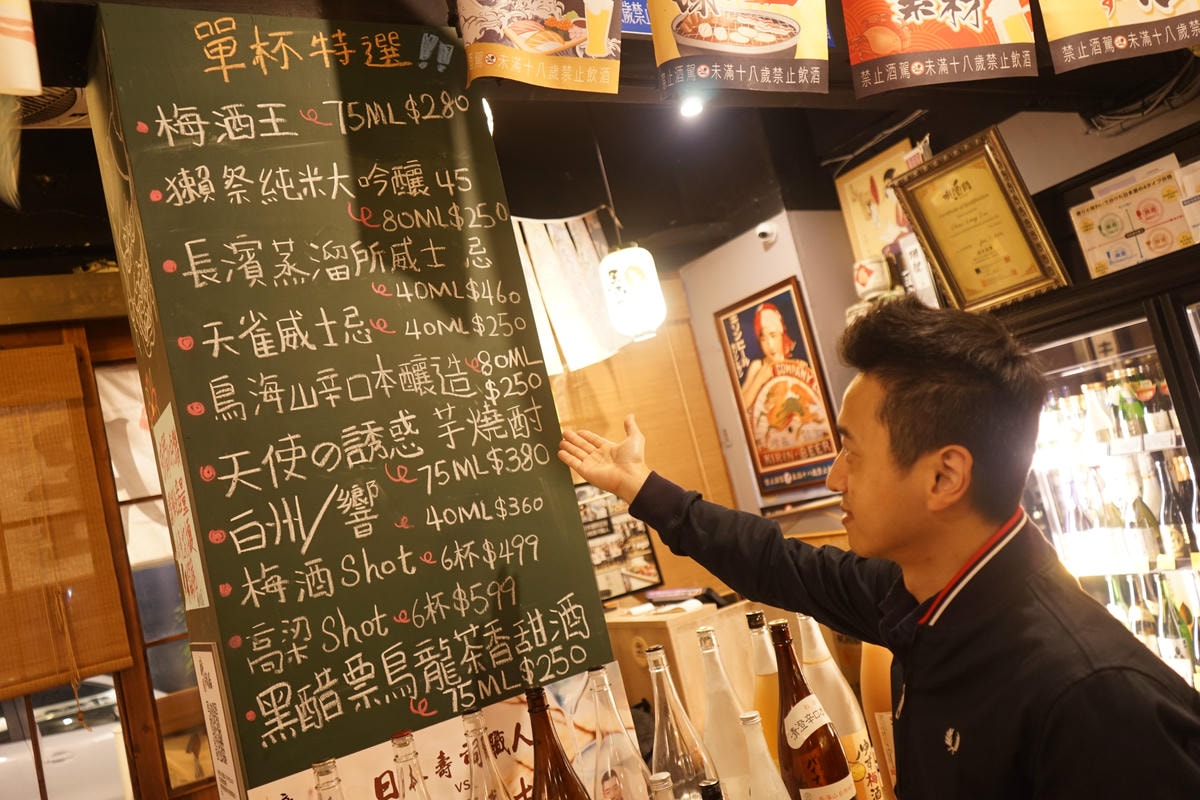 單杯特選!!
梅酒王 75ML$280
獺祭純米大吟釀 45
80ML$250
長濱蒸溜所威士忌
40ML$460
天雀威士忌 40ML$250
鳥海山辛口本釀造 80ML
$250
天使の誘惑 芋燒酎
75ML$380
白州/響 40ML$360
梅酒Shot 6杯$499
高梁Shot 6杯$599
黑醋栗烏龍茶香甜酒
75ML$250
未滿十八歲禁止飲酒
禁止酒駕 未滿十八歲禁止飲酒
禁止酒駕 未滿十八歲禁止飲酒
禁止酒駕 未滿十八歲禁止飲酒
COMPANY
KIRIN BEER
VS